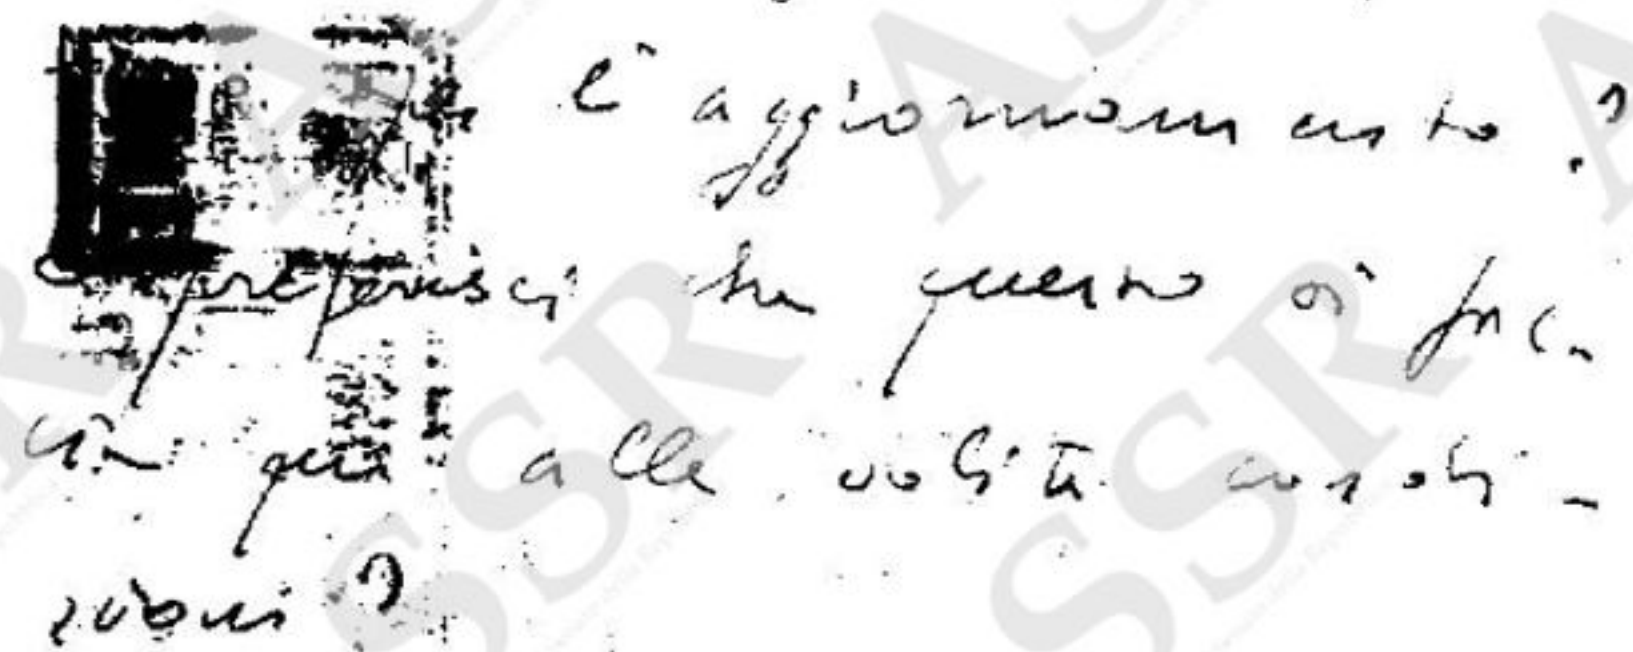 è aggiornamento?
preferisci che questo si fac.
cia qui alle solite condi-
zioni?